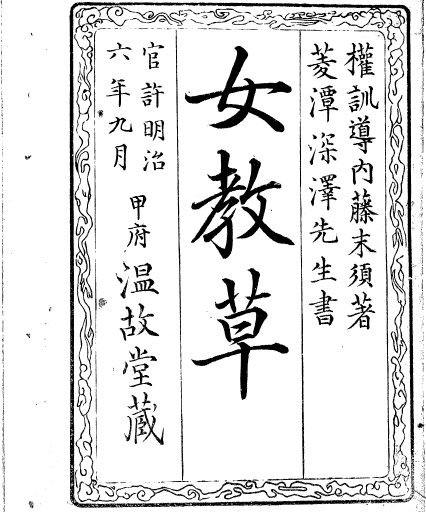 權訓導內藤末須著
菱潭深澤先生書
女教草
官許明治
六年九月
甲府温故堂蔵